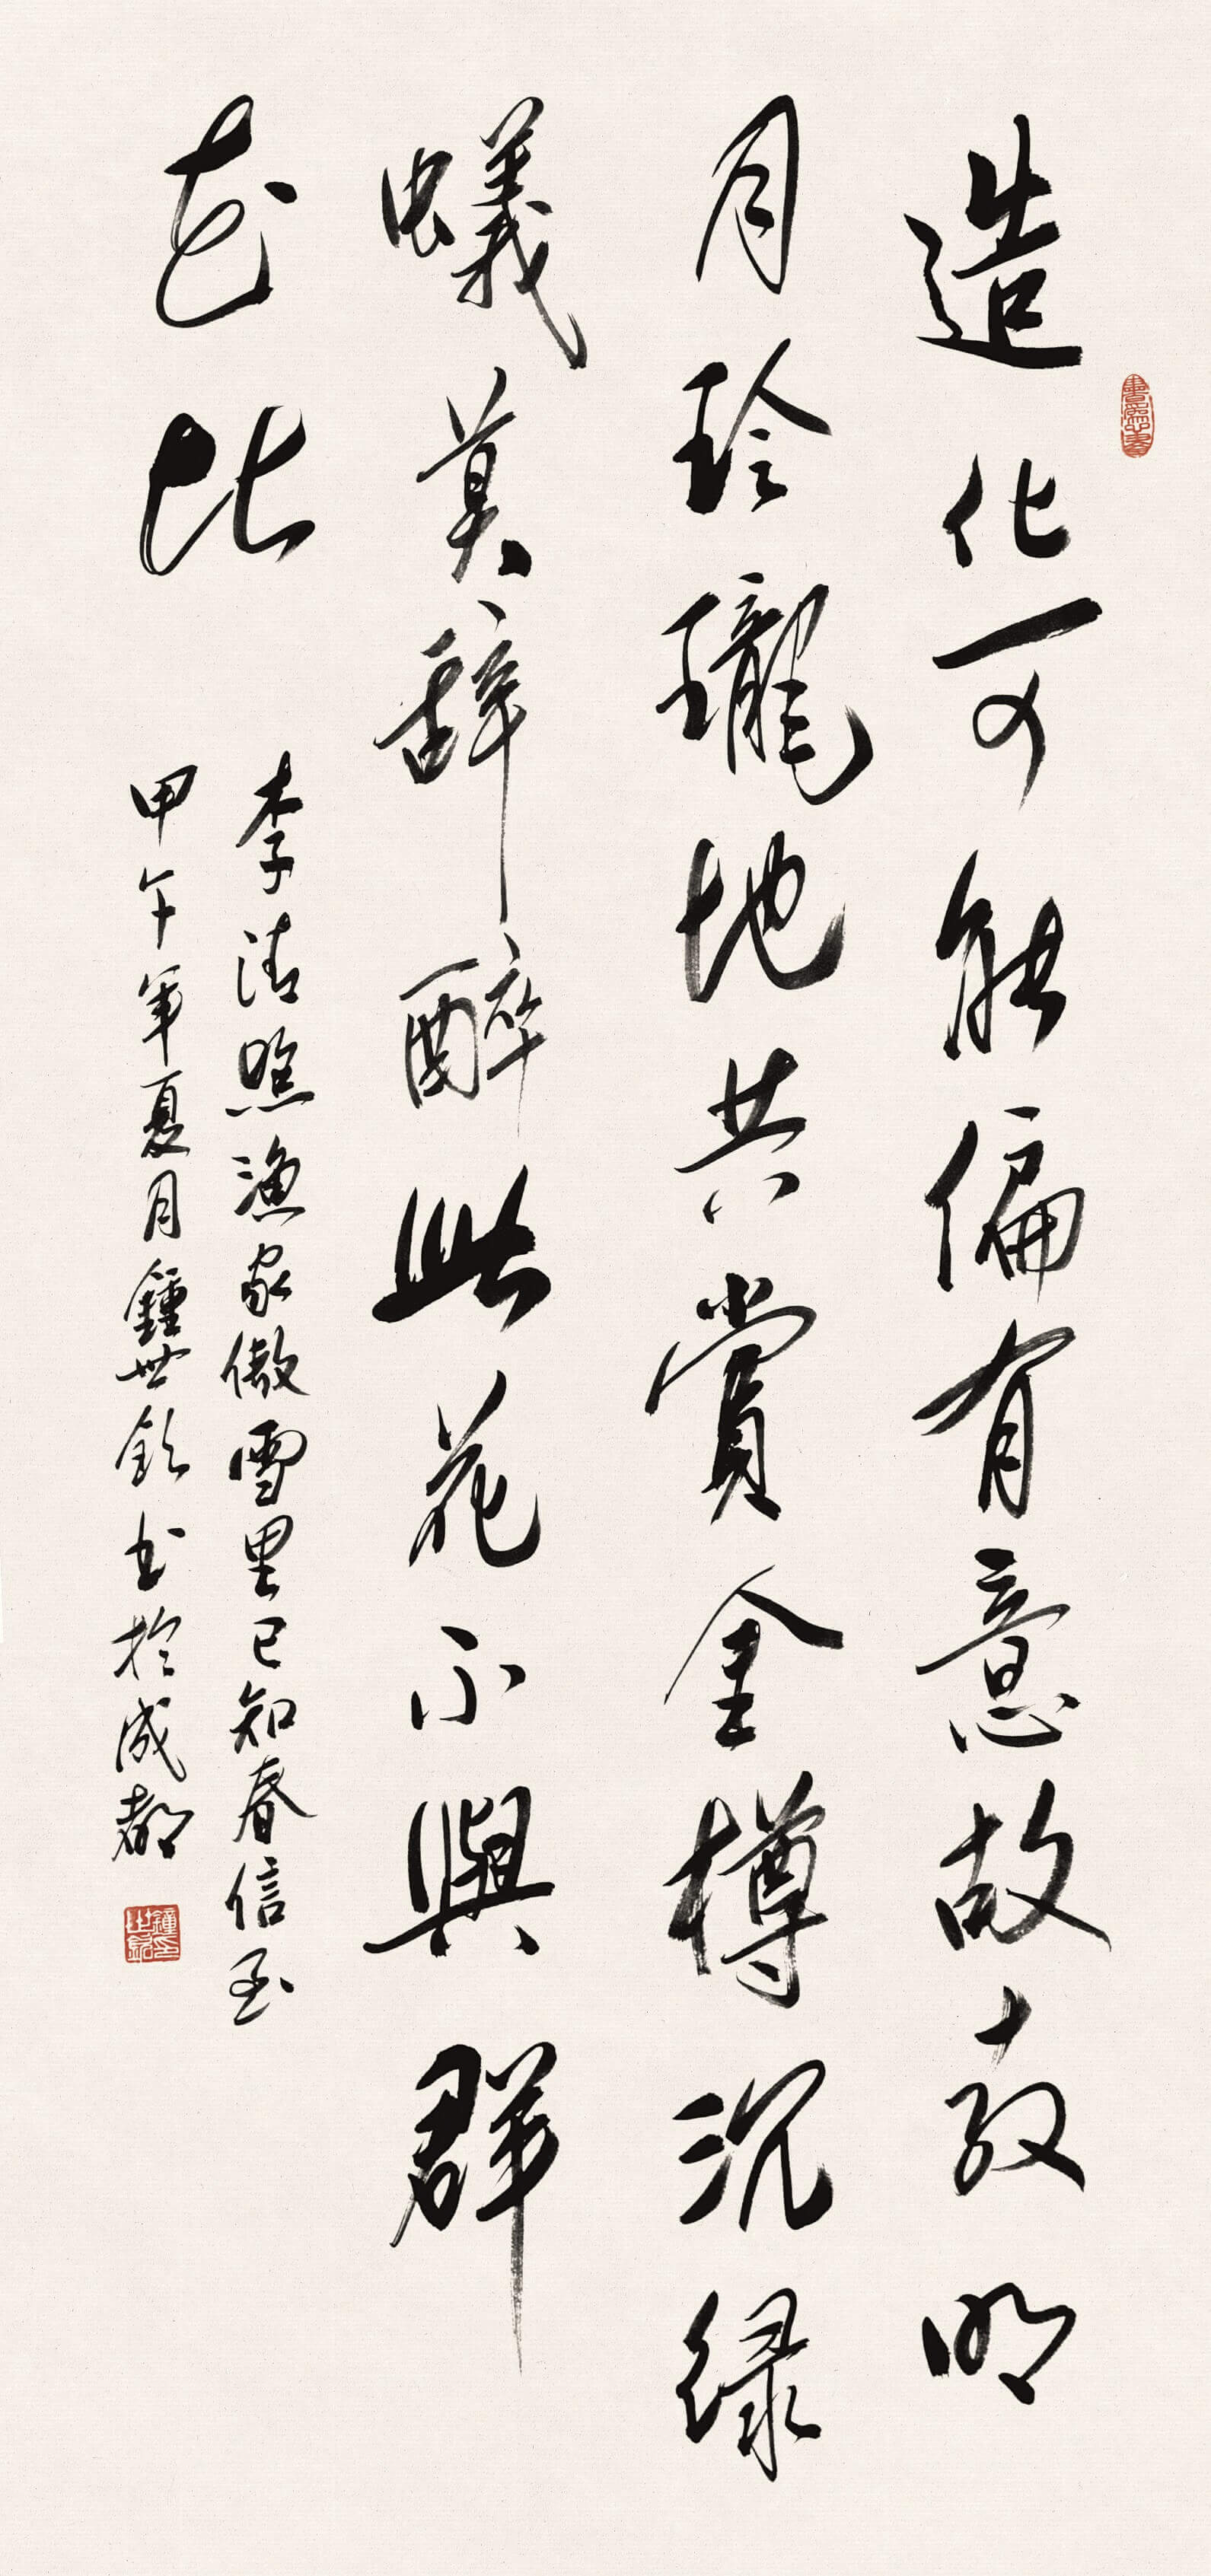 造化可能偏有意故教明
月玲瓏地共賞金樽沉绿
蟻莫辞醉此花不與群
花比
李清照漁家傲雪里已知春信至
甲午年夏月鍾世欽书於成都